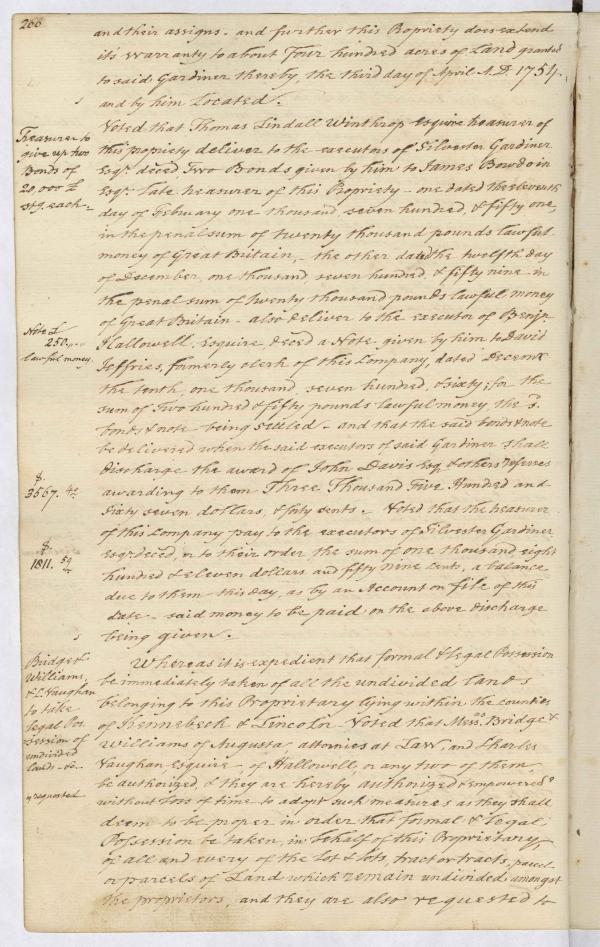 266
and their assigns. and further this Propriety does extend
its warranty to about Four hundred acres of Land granted
to said Gardiner thereby, the third day of April A.D. 1754.
and by him Located.
Treasurer to
give up two
Bonds of
20,000 £
stg. each
Voted that Thomas Lindall Winthrop Esquire treasurer of
this propriety deliver to the executors of Silvester Gardiner
Esqr. deced, Two Bonds given by him to James Bowdoin
Esqr. late treasurer of this Propriety - one dated the eleventh
day of February one thousand, seven hundred, & fifty one,
in the penal sum of twenty thousand pounds lawful
money of Great Britain, - the other dated the twelfth day
of December, one thousand, seven hundred, & fifty nine in
the penal sum of twenty thousand pounds lawful money
of Great Britain - also deliver to the executor of Benja
Note £
250.
lawful money.
Hallowell, Esquire, deced a Note, given by him to David
Jeffries, formerly clerk of this Company, dated Decemr
the tenth, one thousand, seven hundred, & sixty; for the
sum of Two hundred & fifty pounds lawful money, the sd.
bonds & note being settled - and that the said bonds & note
be delivered when the said executors of said Gardiner shall
discharge the award of John Davis Esq & others referees
$
3567. 40/
awarding to them Three Thousand Five Hundred and
sixty seven dollars, & forty cents. Voted that the treasurer
of this Company pay to the executors of Silvester Gardiner
$
1811. 59/
Esqr deced, or to their order the sum of one thousand eight
hundred & eleven dollars and fifty nine cents, a balance
due to them this day, as by an Account on file of this
date - said money to be paid on the above discharge
being given.
Bridge &
Williams
& C. Vaughan
to take
legal Pos
session of
undivided
lands - &c.
requested
Whereas it is expedient that formal & legal Possession
be immediately taken of all the undivided lands
belonging to this Proprietary lying within the counties
of Kennebeck & Lincoln - Voted that Messrs. Bridge &
Williams of Augusta, attornies at Law, and Charles
Vaughan, Esquire, of Hallowell, or any two of them
be authorized, & they are hereby authorized & empowered
without loss of time to adopt such measures as they shall
deem to be proper in order that formal & legal
Possession be taken, in behalf of this Proprietary,
of all and every of the lot & lots, tract or tracts, parcel
or parcels of Land which remain undivided amongst
the proprietors, and they are also requested to